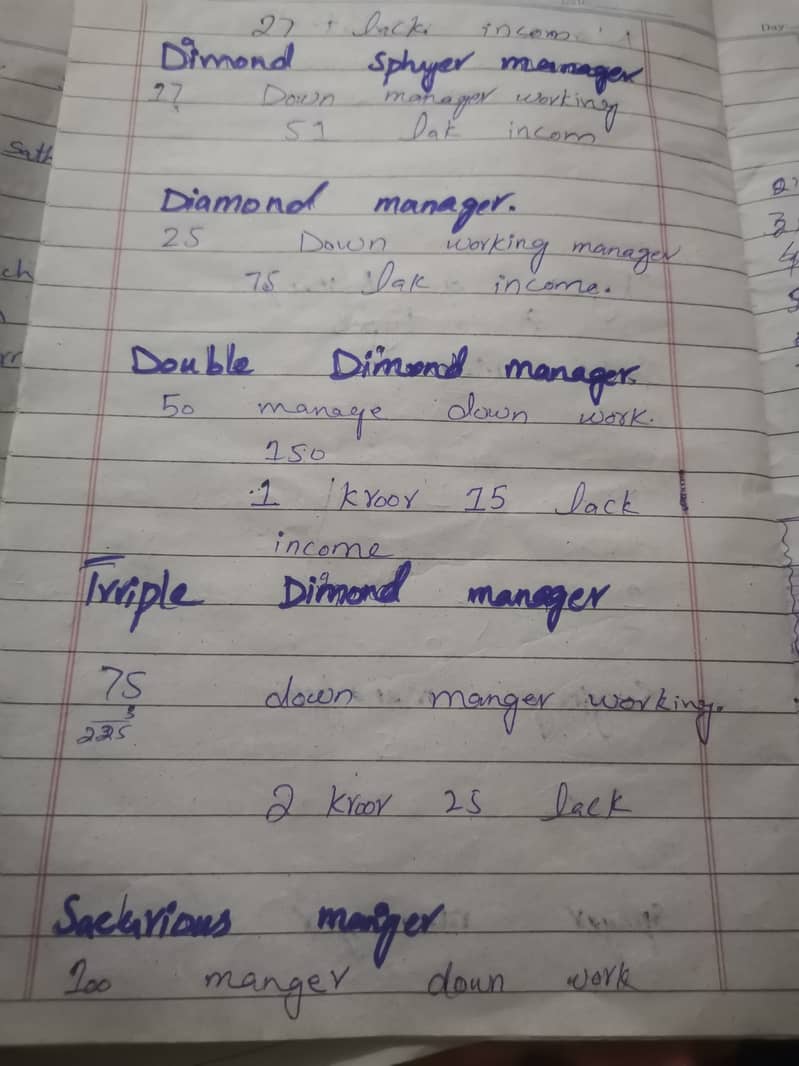 27 lack incom
Dimond Sphyer manager
17 Down manager working
51 lak incom
Diamond manager.
25 Down working manager
75 lak income.
Double Dimond manager.
50 manage down work.
150
1 kroor 15 lack
income
Trriple Dimond manager
75 down manger working.
3
225
2 kroor 25 lack
manger
100 manger down work
Sath
ch
Day